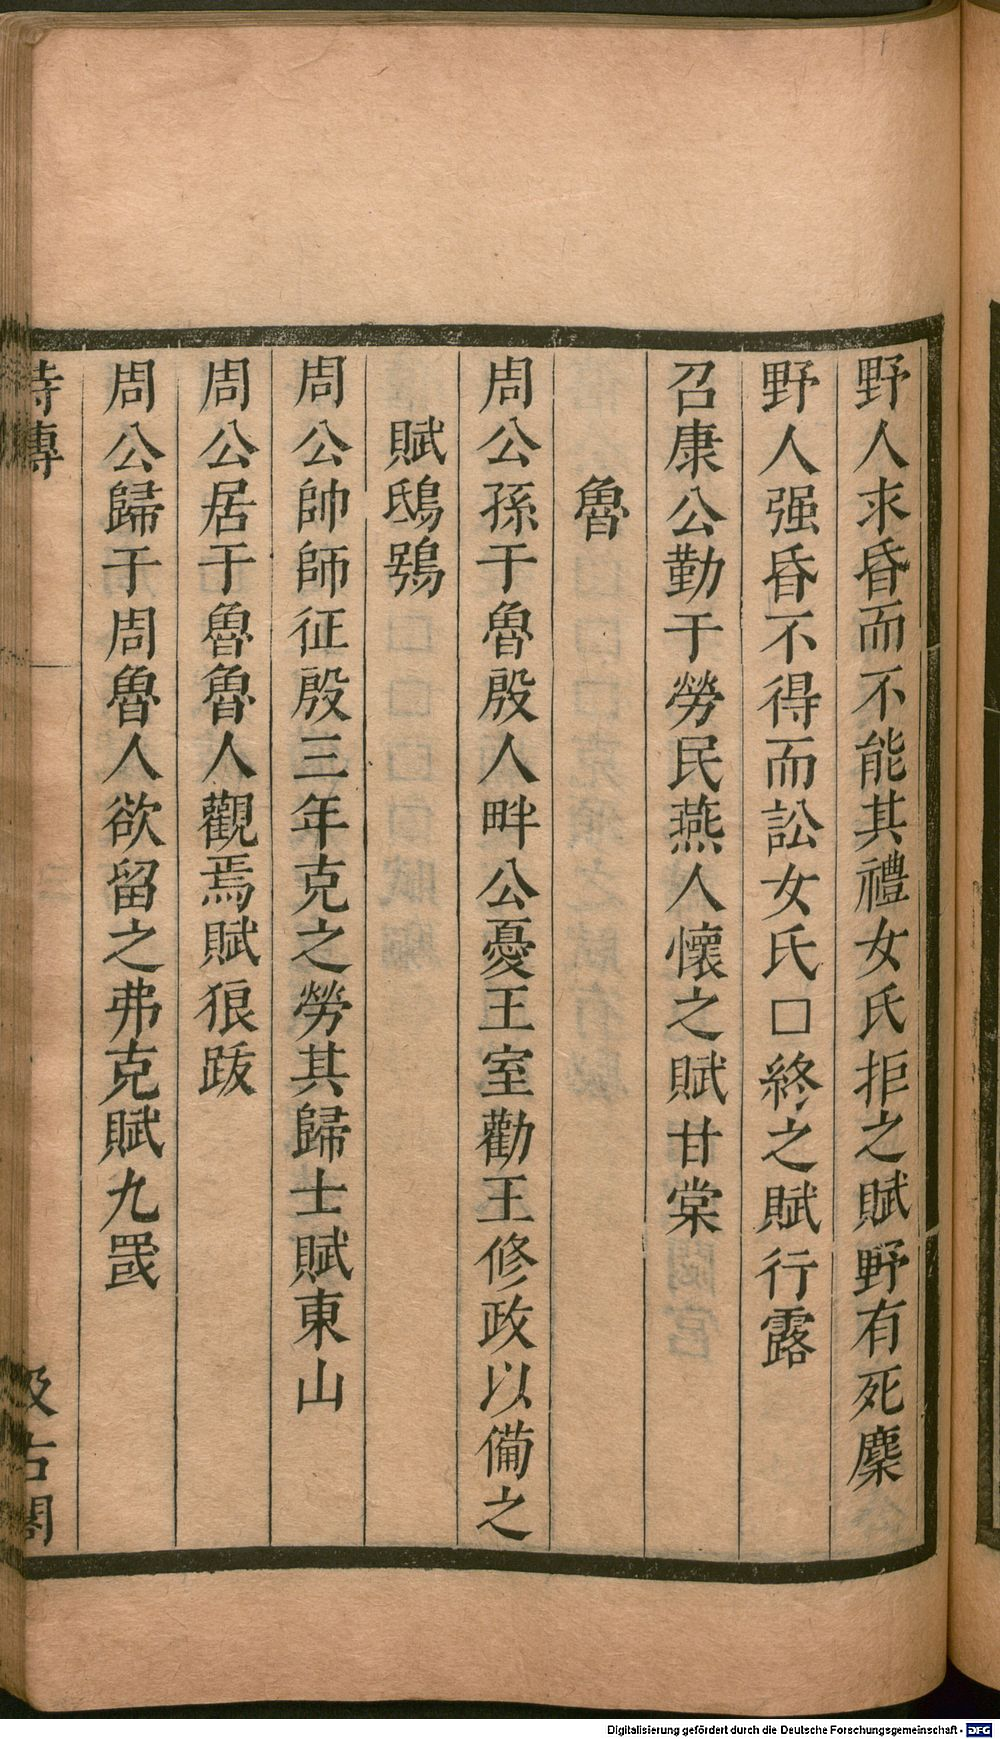 野人求昏而不能其禮女氏拒之賦野有死麇
野人强昏不得而訟女氏口終之賦行露
召康公勤于勞民燕人懷之賦甘棠
魯
周公孫于魯殷人畔公憂王室勸王修政以備之
賦鴟鴞
周公帥師征殷三年克之勞其歸士賦東山
周公居于魯魯人觀焉賦狼跋
周公歸于周魯人欲留之弗克賦九罭
詩傳
汲古閣
Digitalisierung gefördert durch die Deutsche Forschungsgemeinschaft - DFG